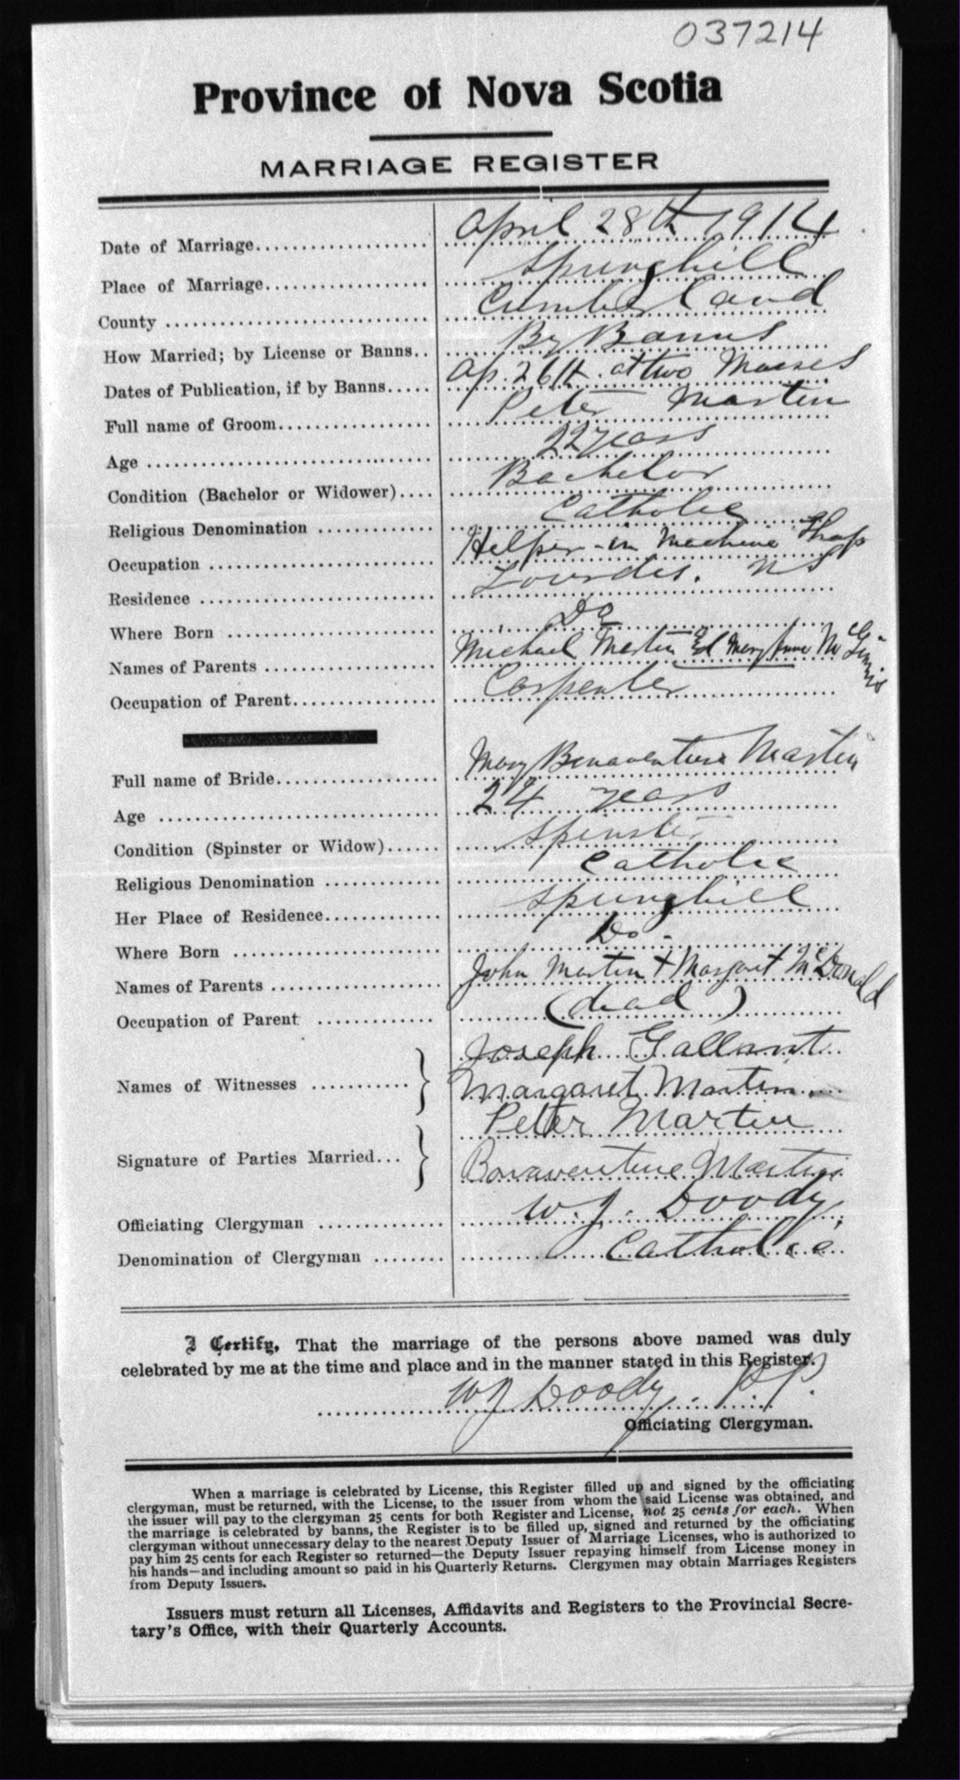 037214
Province of Nova Scotia
MARRIAGE REGISTER
Date of Marriage April 28th 1914
Place of Marriage Springhill
County Cumberland
How Married; by License or Banns By Banns
Dates of Publication, if by Banns Ap. 26th at two Masses
Full name of Groom Peter Martin
Age 22 years
Condition (Bachelor or Widower) Bachelor
Religious Denomination Catholic
Occupation Helper - in Machine Shop
Residence Lourdes. NS
Where Born Do
Names of Parents Michael Martin Mary Anne McGinnis
Occupation of Parent Carpenter
Full name of Bride Mary Bonaventure Martin
Age 24 years
Condition (Spinster or Widow) Spinster
Religious Denomination Catholic
Her Place of Residence Springhill
Where Born Do -
Names of Parents John Martin + Margaret McDonald
Occupation of Parent (dead)
Names of Witnesses Joseph Gallant
Margaret Martin
Signature of Parties Married Peter Martin
Bonaventure Martin
Officiating Clergyman W. J. Doody
Denomination of Clergyman Catholic
I Certify, That the marriage of the persons above named was duly
celebrated by me at the time and place and in the manner stated in this Register.
WJ Doody. P.P.
Officiating Clergyman.
When a marriage is celebrated by License, this Register filled up and signed by the officiating
clergyman, must be returned, with the License, to the issuer from whom the said License was obtained, and
the issuer will pay to the clergyman 25 cents for both Register and License, not 25 cents for each. When
the marriage is celebrated by banns, the Register is to be filled up, signed and returned by the officiating
clergyman without unnecessary delay to the nearest Deputy Issuer of Marriage Licenses, who is authorized to
pay him 25 cents for each Register so returned—the Deputy Issuer repaying himself from License money in
his hands—and including amount so paid in his Quarterly Returns. Clergymen may obtain Marriages Registers
from Deputy Issuers.
Issuers must return all Licenses, Affidavits and Registers to the Provincial Secre-
tary's Office, with their Quarterly Accounts.